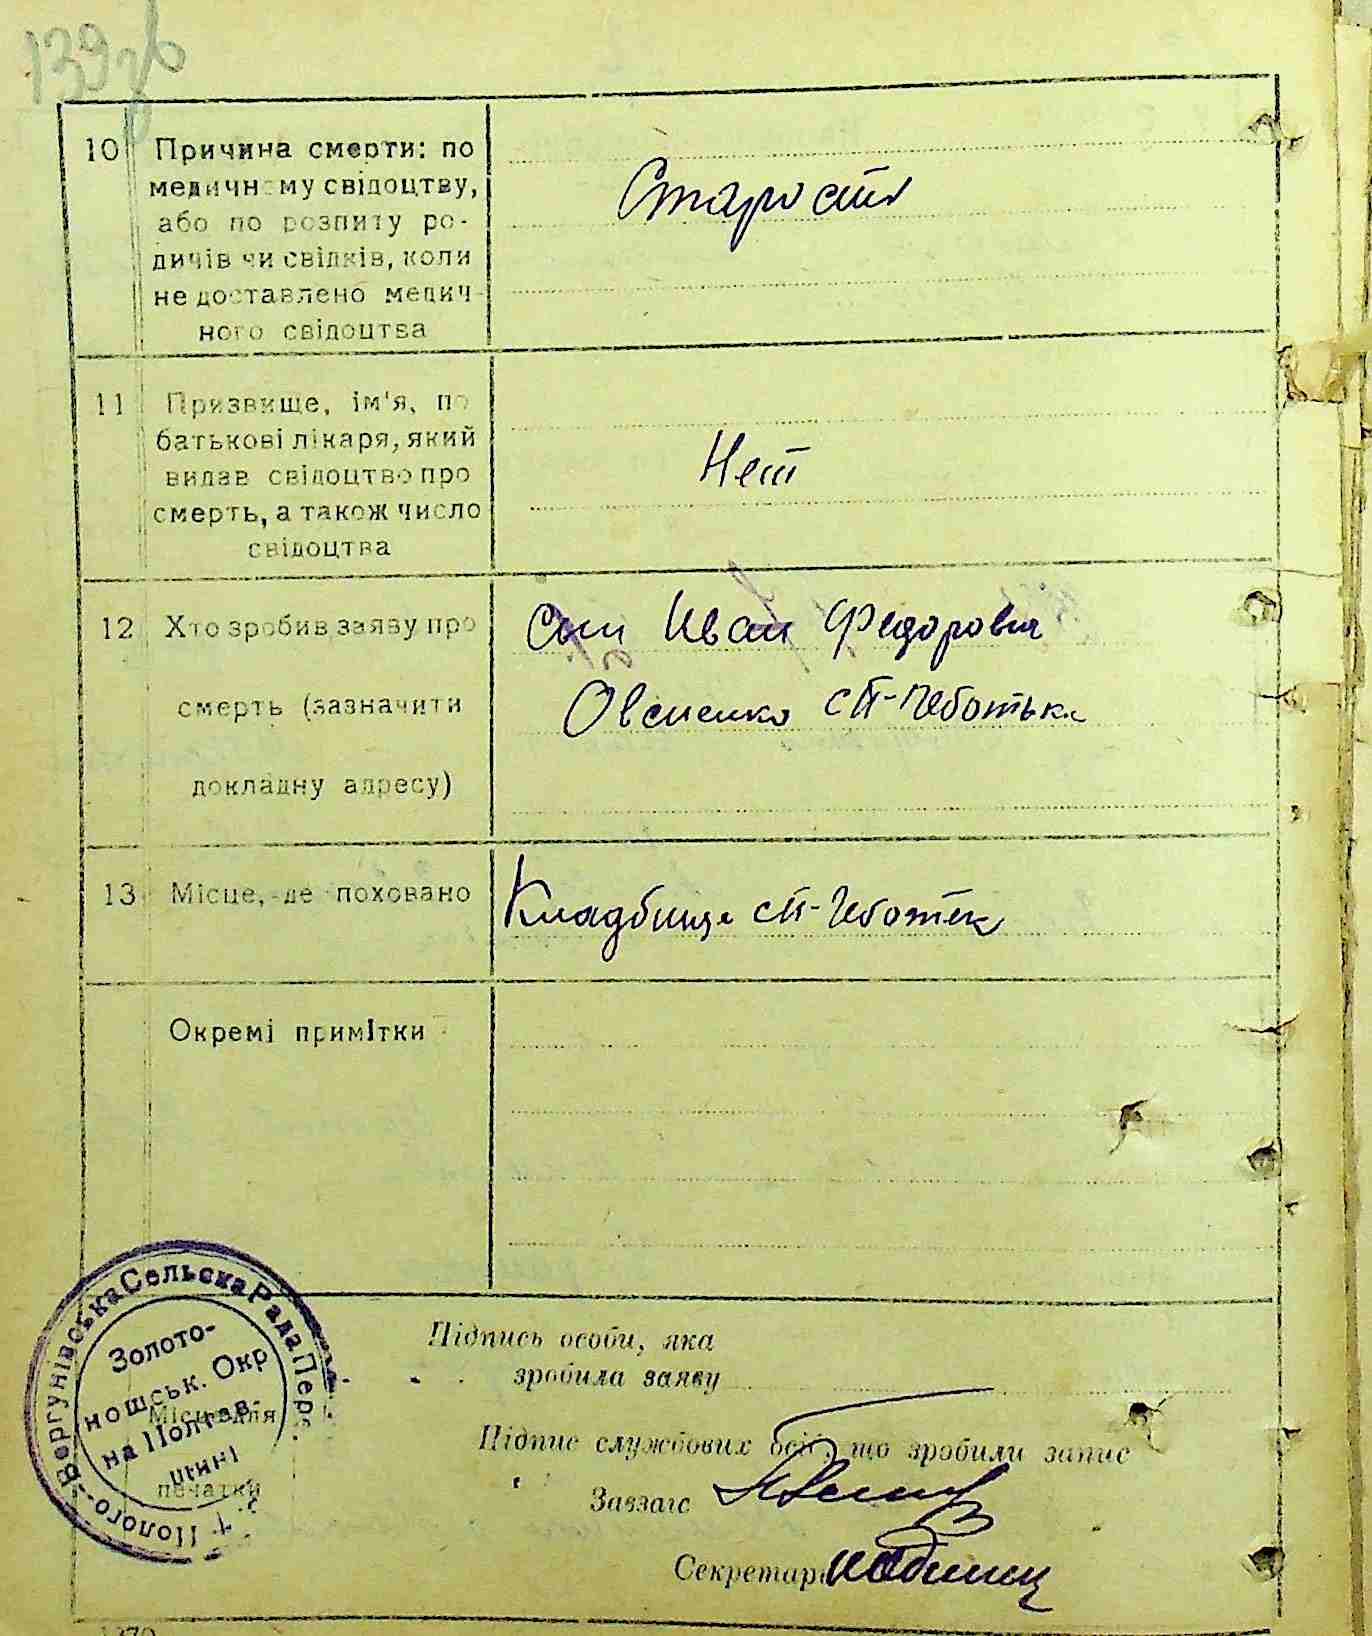 139зв
10 Причина смерти: по
медичному свідоцтву,
або по розпиту ро-
дичів чи свідків, коли
не доставлено медич-
ного свідоцтва
Старость
11 Призвище, ім'я, по
батькові лікаря, який
видав свідоцтво про
смерть, а також число
свідоцтва
Нет
12 Хто зробив заяву про
смерть (зазначити
докладну адресу)
Сын Иван Федорович
Овсиенко сП-Чеботьки
13 Місце, де поховано
Кладбище сП-Чеботьк
Окремі примітки
Підпись особи, яка
зробила заяву
Підпис службових осіб, що зробили запис
Завзагс
Секретарь
Полого-Вергунівська Сельска Рада Пер.
Золото-
ношськ. Окр
на Полтав-
щині
Місце для
печатки